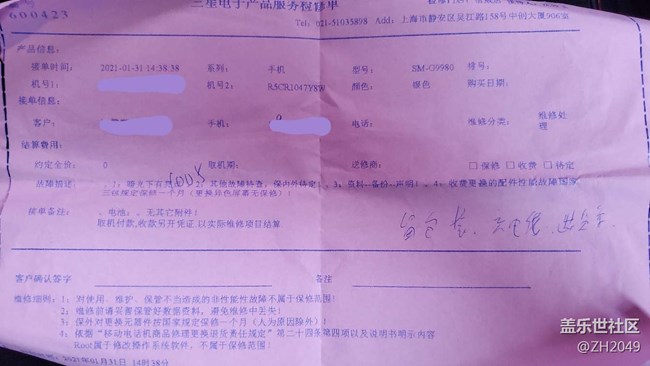 三星电子产品服务检修单
600423
Tel:021-51035898 Add:上海市静安区吴江路158号中创大厦906室
产品信息:
接单时间: 2021-01-31 14:38:38 系列: 手机 型号: SM-G9980 排号:
机号1: 机号2: R5CR1047Y8W 颜色: 银色 购买日期:
接单信息:
客户: 手机: 电话: 维修分类: 维修处理
结算费用:
约定全价: 0 取机期: 送修商: 保修 收费 待定
故障描述: 其他故障检查,保内外待定!,3:资料、备份、声明!,4:收费更换的配件性能故障国家
三包规定保修一个月(更换异色屏幕无保修)!
接单备注: 、电池:、无其它附件!
取机付款,收款另开凭证.以实际维修项目结算.
客户确认签字 备注
维修细则: 1:对使用、维护、保管不当造成的非性能性故障不属于保修范围!
2:维修前请妥善保管好数据资料,避免维修中丢失!
3:保外对更换元器件按国家规定保修一个月(人为原因除外)!
4:依据“移动电话机商品修理更换退货责任规定”第二十四条第四项以及说明书明示内容
Root属于修改操作系统软件,不属于保修范围!
2021年01月31日 14时38分
盖乐世社区
@ZH2049